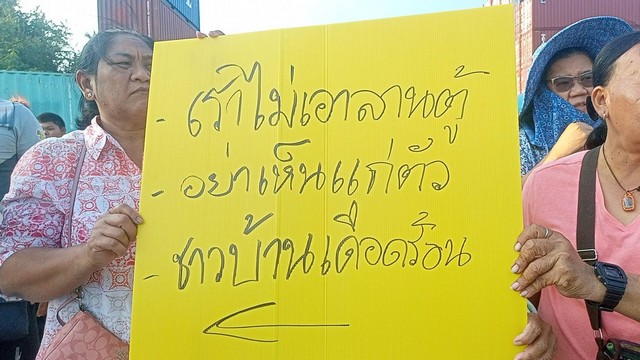 - เร่าไม่เอาลานตู้
- อย่าเห็นแก่ตัว
- ชาวบ้านเดือดร้อน